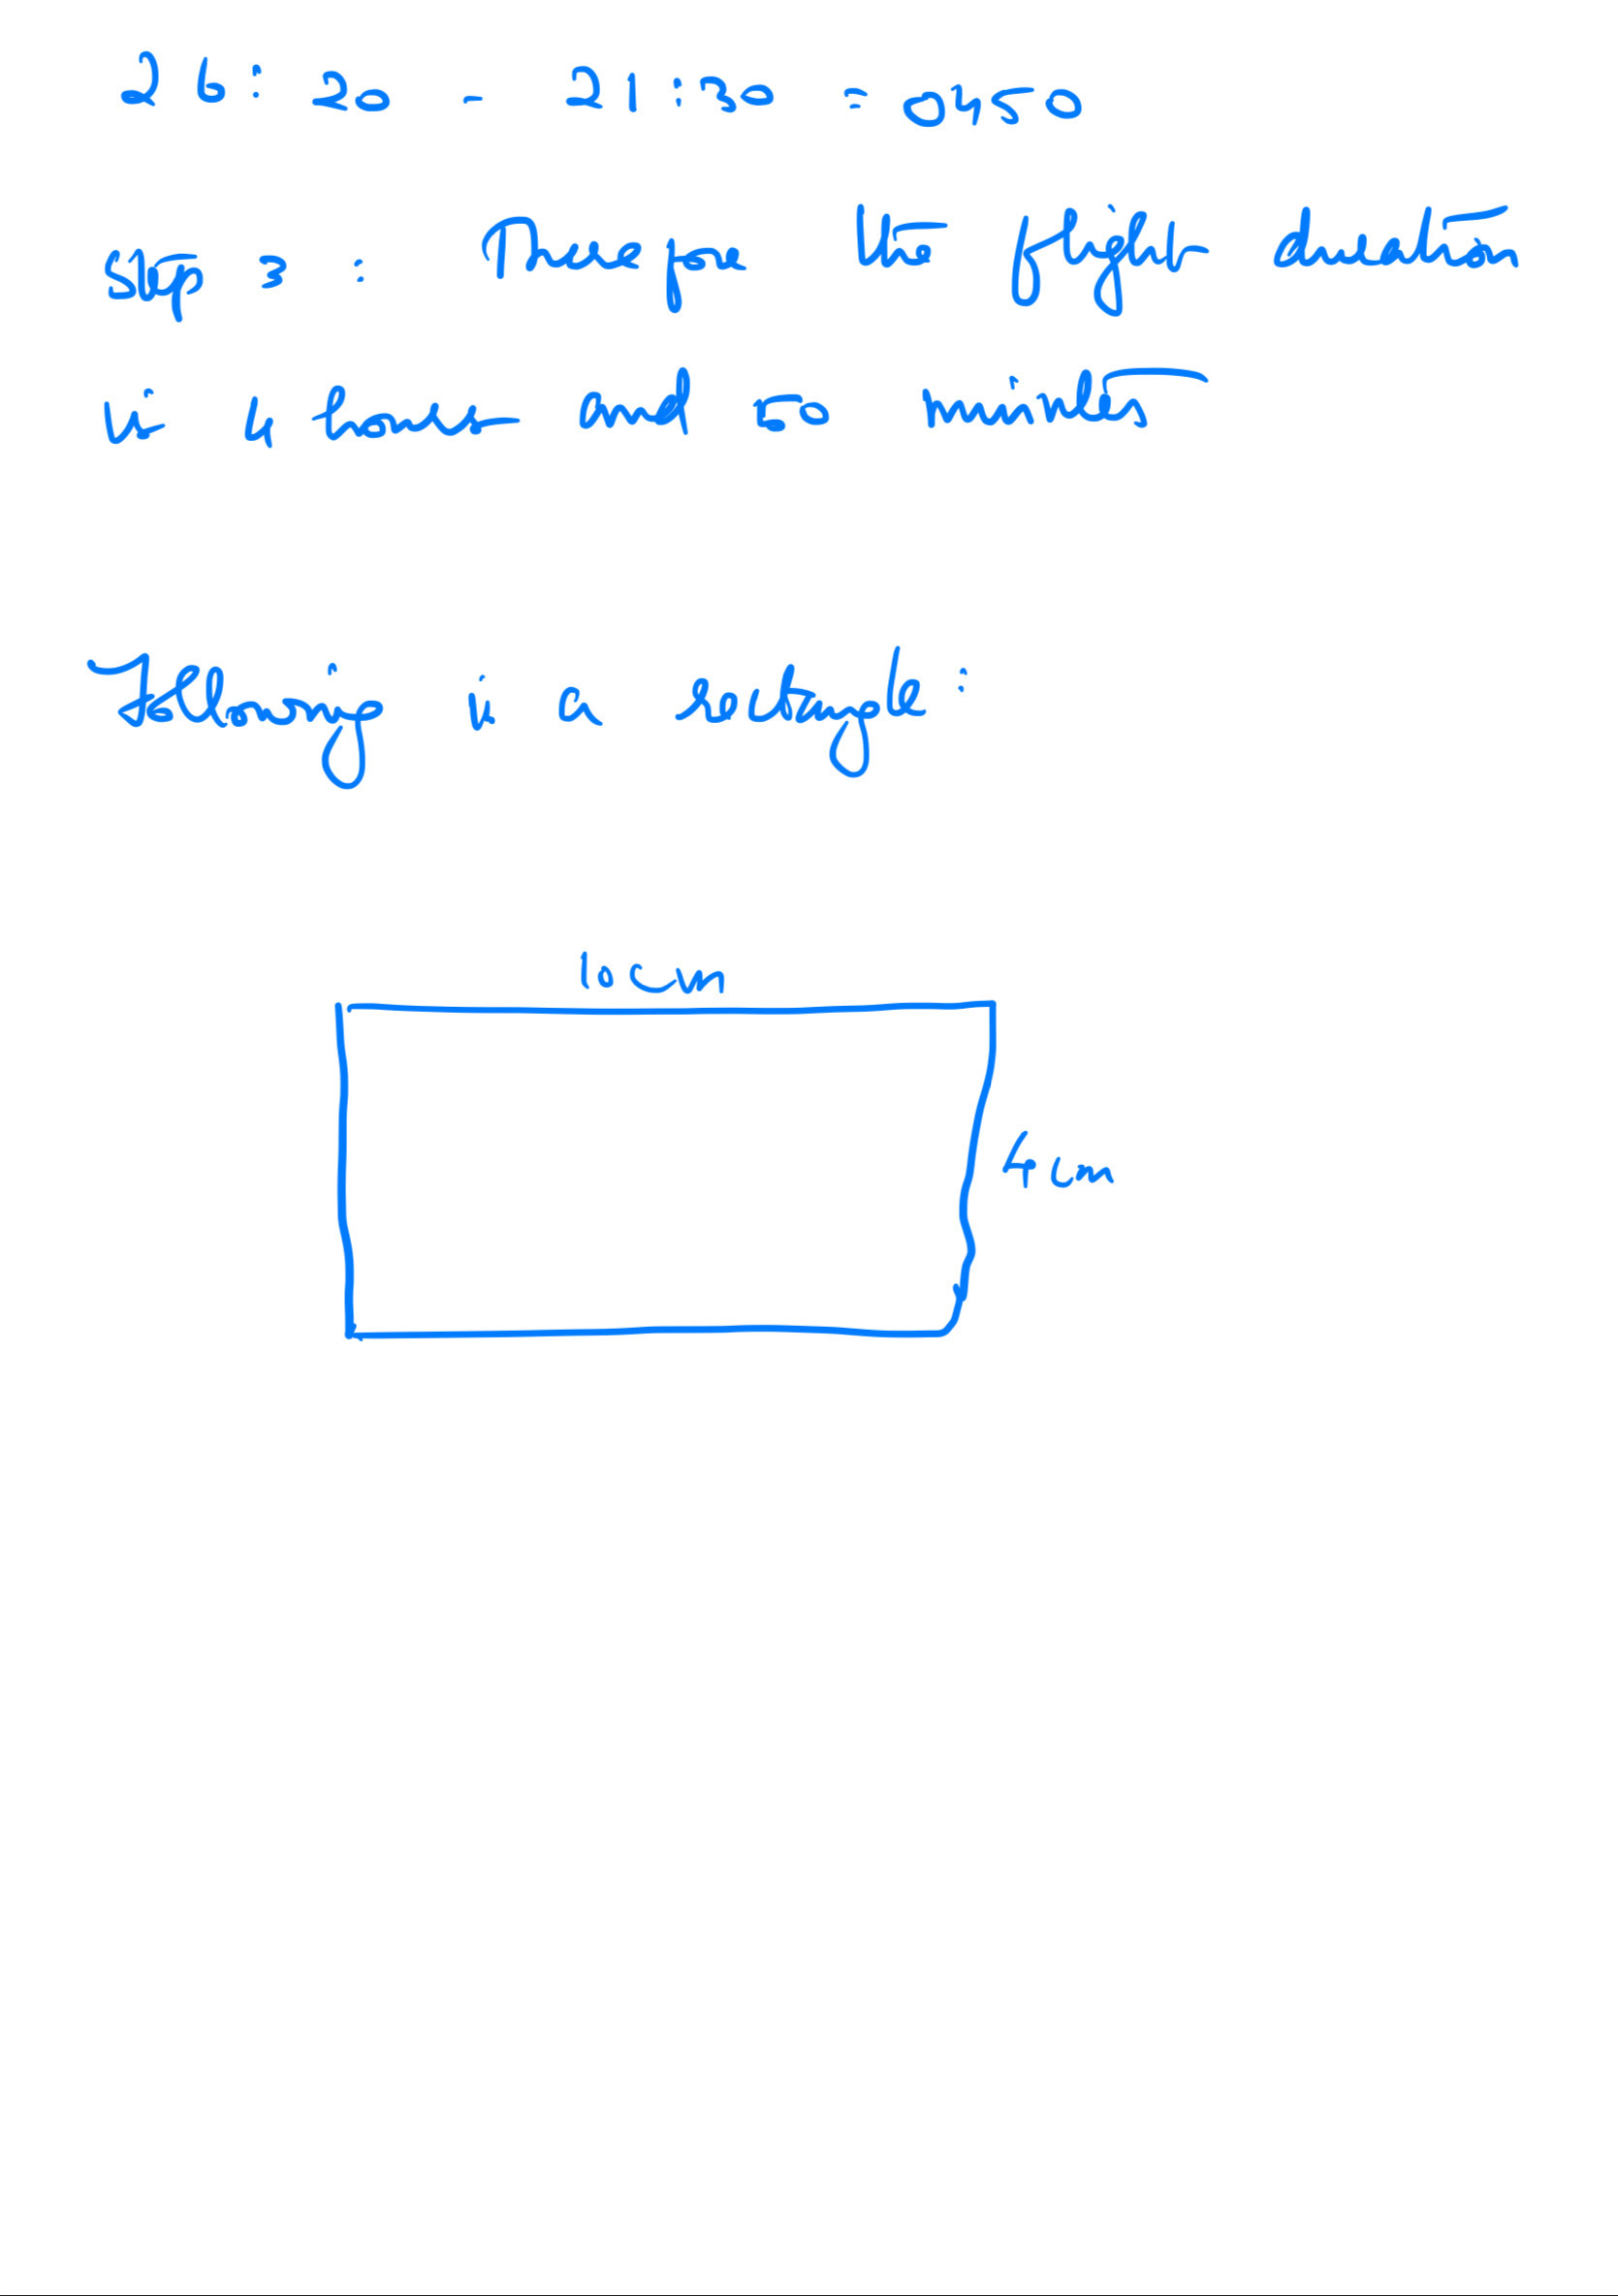 26:20 - 21:30 = 04,50
step 3: Therefore the flight duration
is 4 hours and 50 minutes
Following is a rectangle:
10cm
4cm